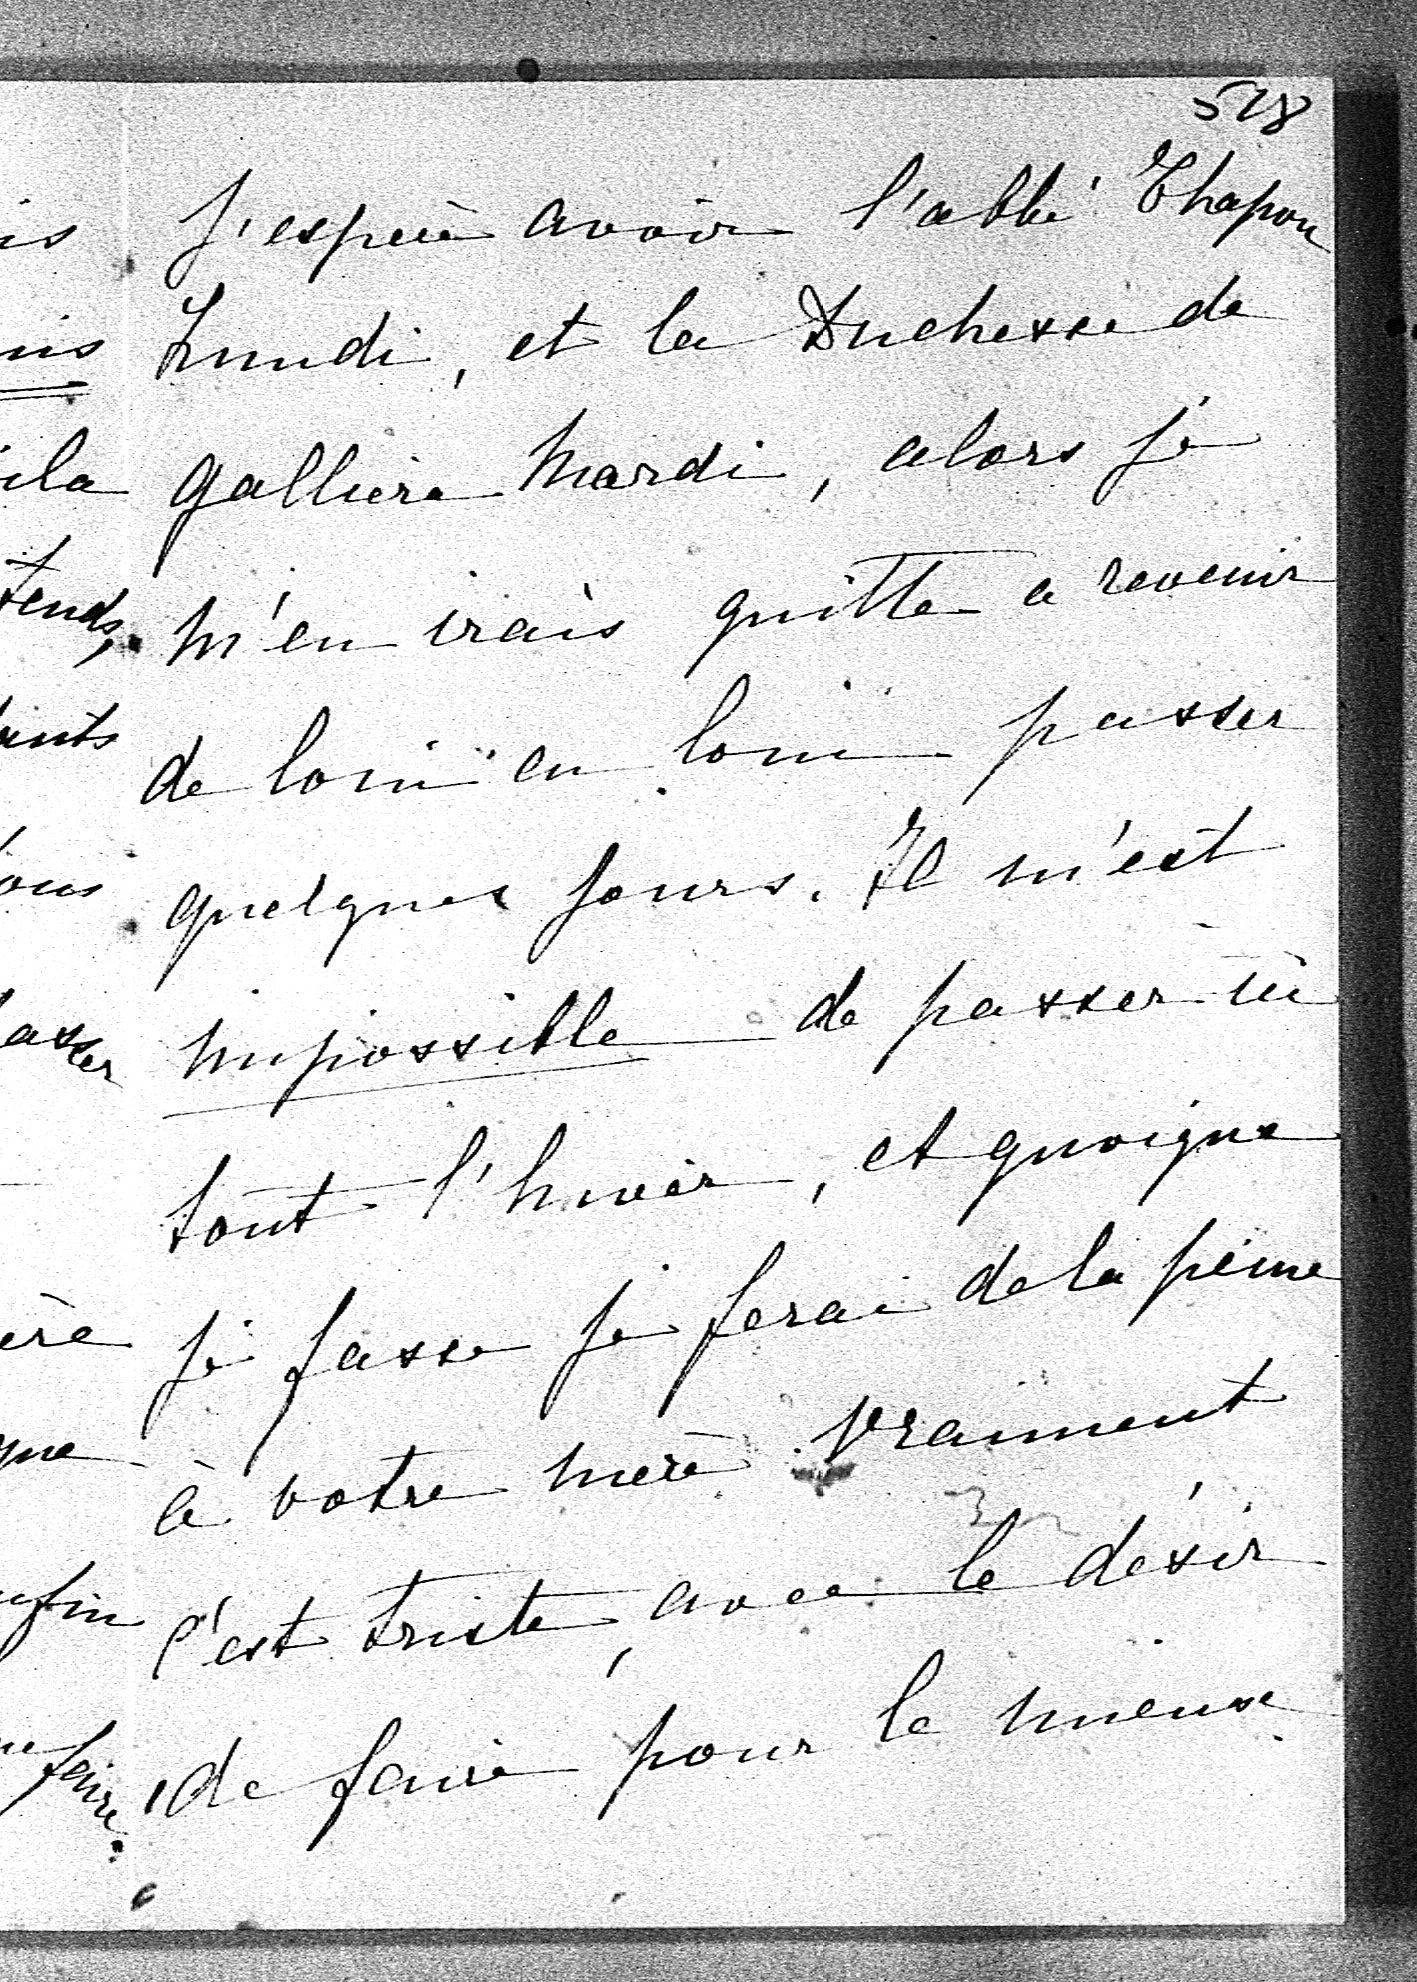 518
J'espère avoir l'abbé Chapon
Lundi, et la Duchesse de
Galliera Mardi, alors je
m'en irais quitte a revenir
de loin en loin passer
quelques jours. Il m'est
impossible de passer ici
tout l'hiver, et quoique
je fasse je ferai de la peine
à votre mère vraiment
c'est triste, avec le désir
de faire pour le mieux